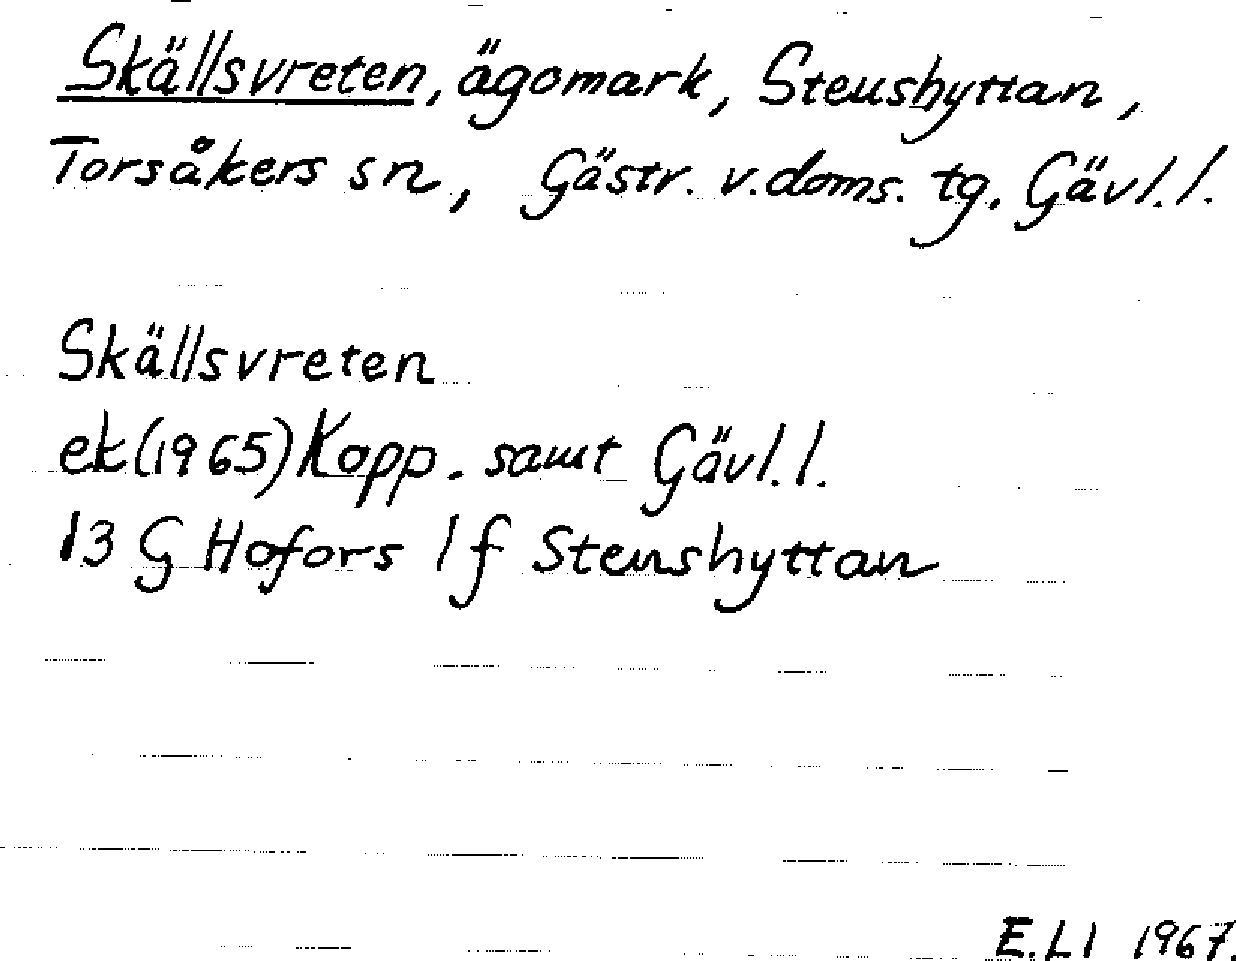 Skällsvreten, ägomark, Stenshyttan,
Torsåkers sn, Gästr. v. doms. tg. Gävl. l.
Skällsvreten
ek (1965) Kopp. samt Gävl. l.
13 G Hofors 1 f Stenshyttan
E. Ll 1967.